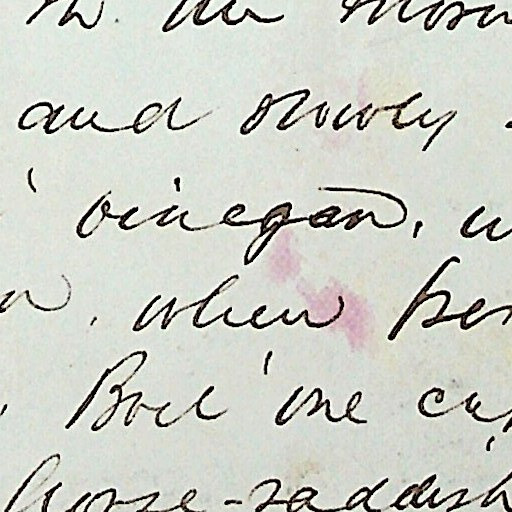 in the
and slowly
vinegar,
when
Boil one cup
horse-raddish